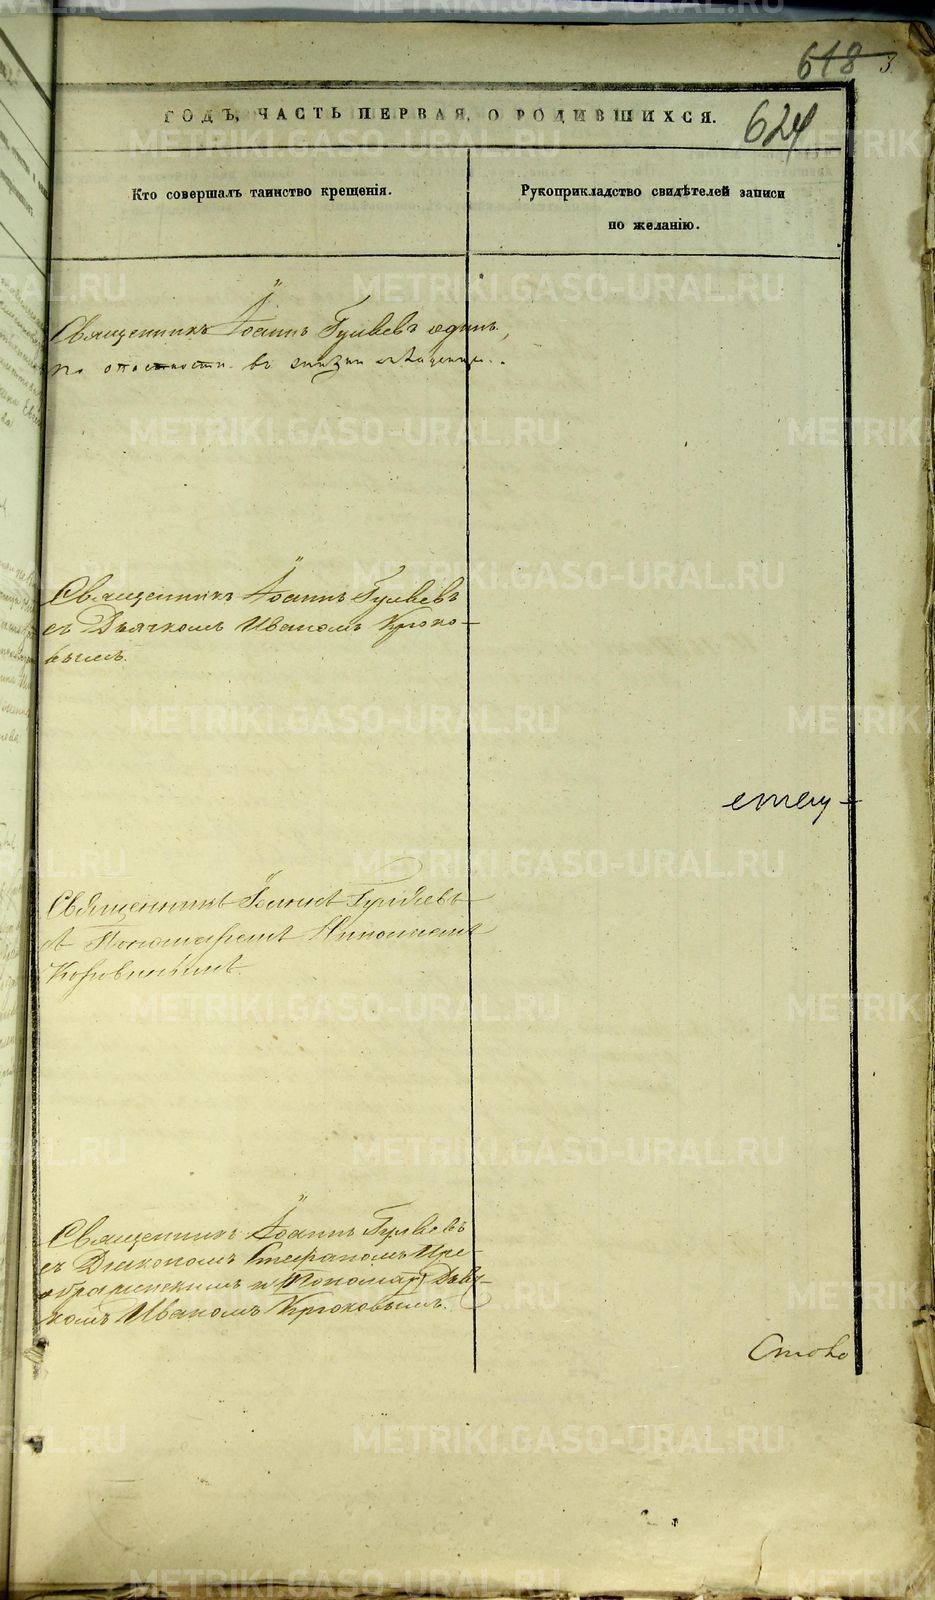 618 3
624
ГОДЪ, ЧАСТЬ ПЕРВАЯ, О РОДИВШИХСЯ.
Кто совершалъ таинство крещенія.
Рукоприкладство свидѣтелей записи
по желанію.
Священникъ Іоаннъ Гуляевъ одинъ,
по опасности въ жизни младенца.
Священникъ Іоаннъ Гуляевъ
съ Дьячкомъ Иваномъ Крюко-
вымъ.
Священникъ Іоаннъ Гуляевъ
съ Пономаремъ Николаемъ
Коровинымъ.
Священникъ Іоаннъ Гуляевъ
съ Діакономъ Стефаномъ Пре-
ображенскимъ и Пономар Дьяч-
комъ Иваномъ Крюковымъ.
METRIKI.GASO-URAL.RU